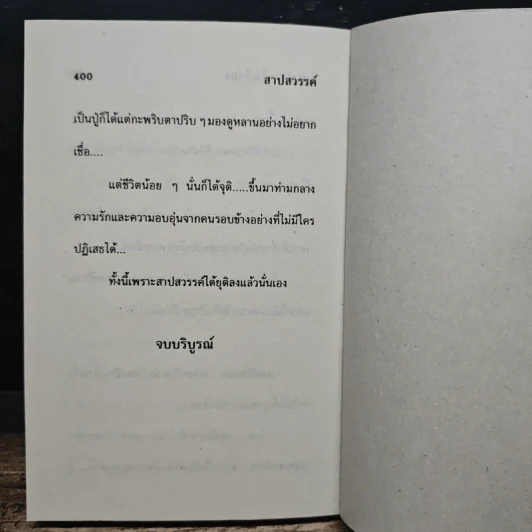 400 สาปสวรรค์
เป็นปู่ก็ได้แต่กะพริบตาปริบ ๆ มองดูหลานอย่างไม่อยาก
เชื่อ....
แต่ชีวิตน้อย ๆ นั่นก็ได้จุติ.....ขึ้นมาท่ามกลาง
ความรักและความอบอุ่นจากคนรอบข้างอย่างที่ไม่มีใคร
ปฏิเสธได้...
ทั้งนี้เพราะสาปสวรรค์ได้ยุติลงแล้วนั่นเอง
จบบริบูรณ์